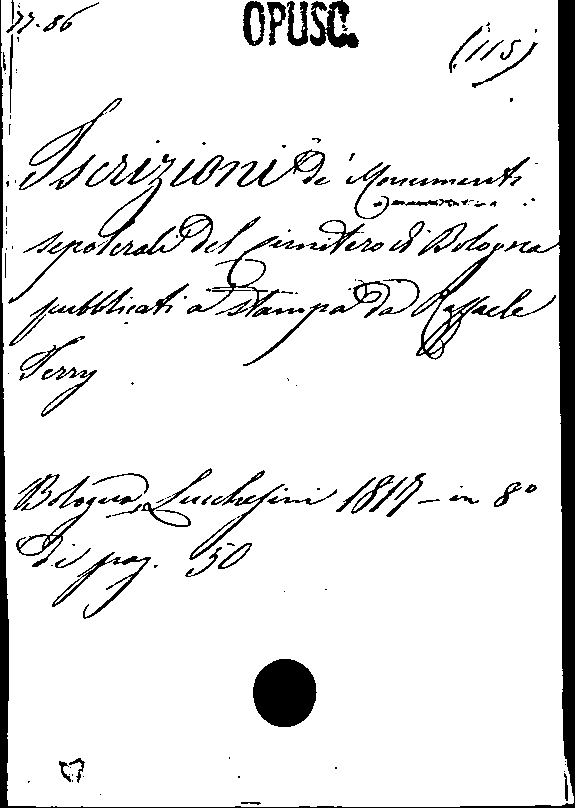 77-86
OPUSC.
(115)
Iscrizioni de' Monumenti
sepolcrali del Cimitero di Bologna
pubblicati a stampa da Raffaele
Terry
Bologna, Lucchesini 1817 – in 8º
di pag. 50